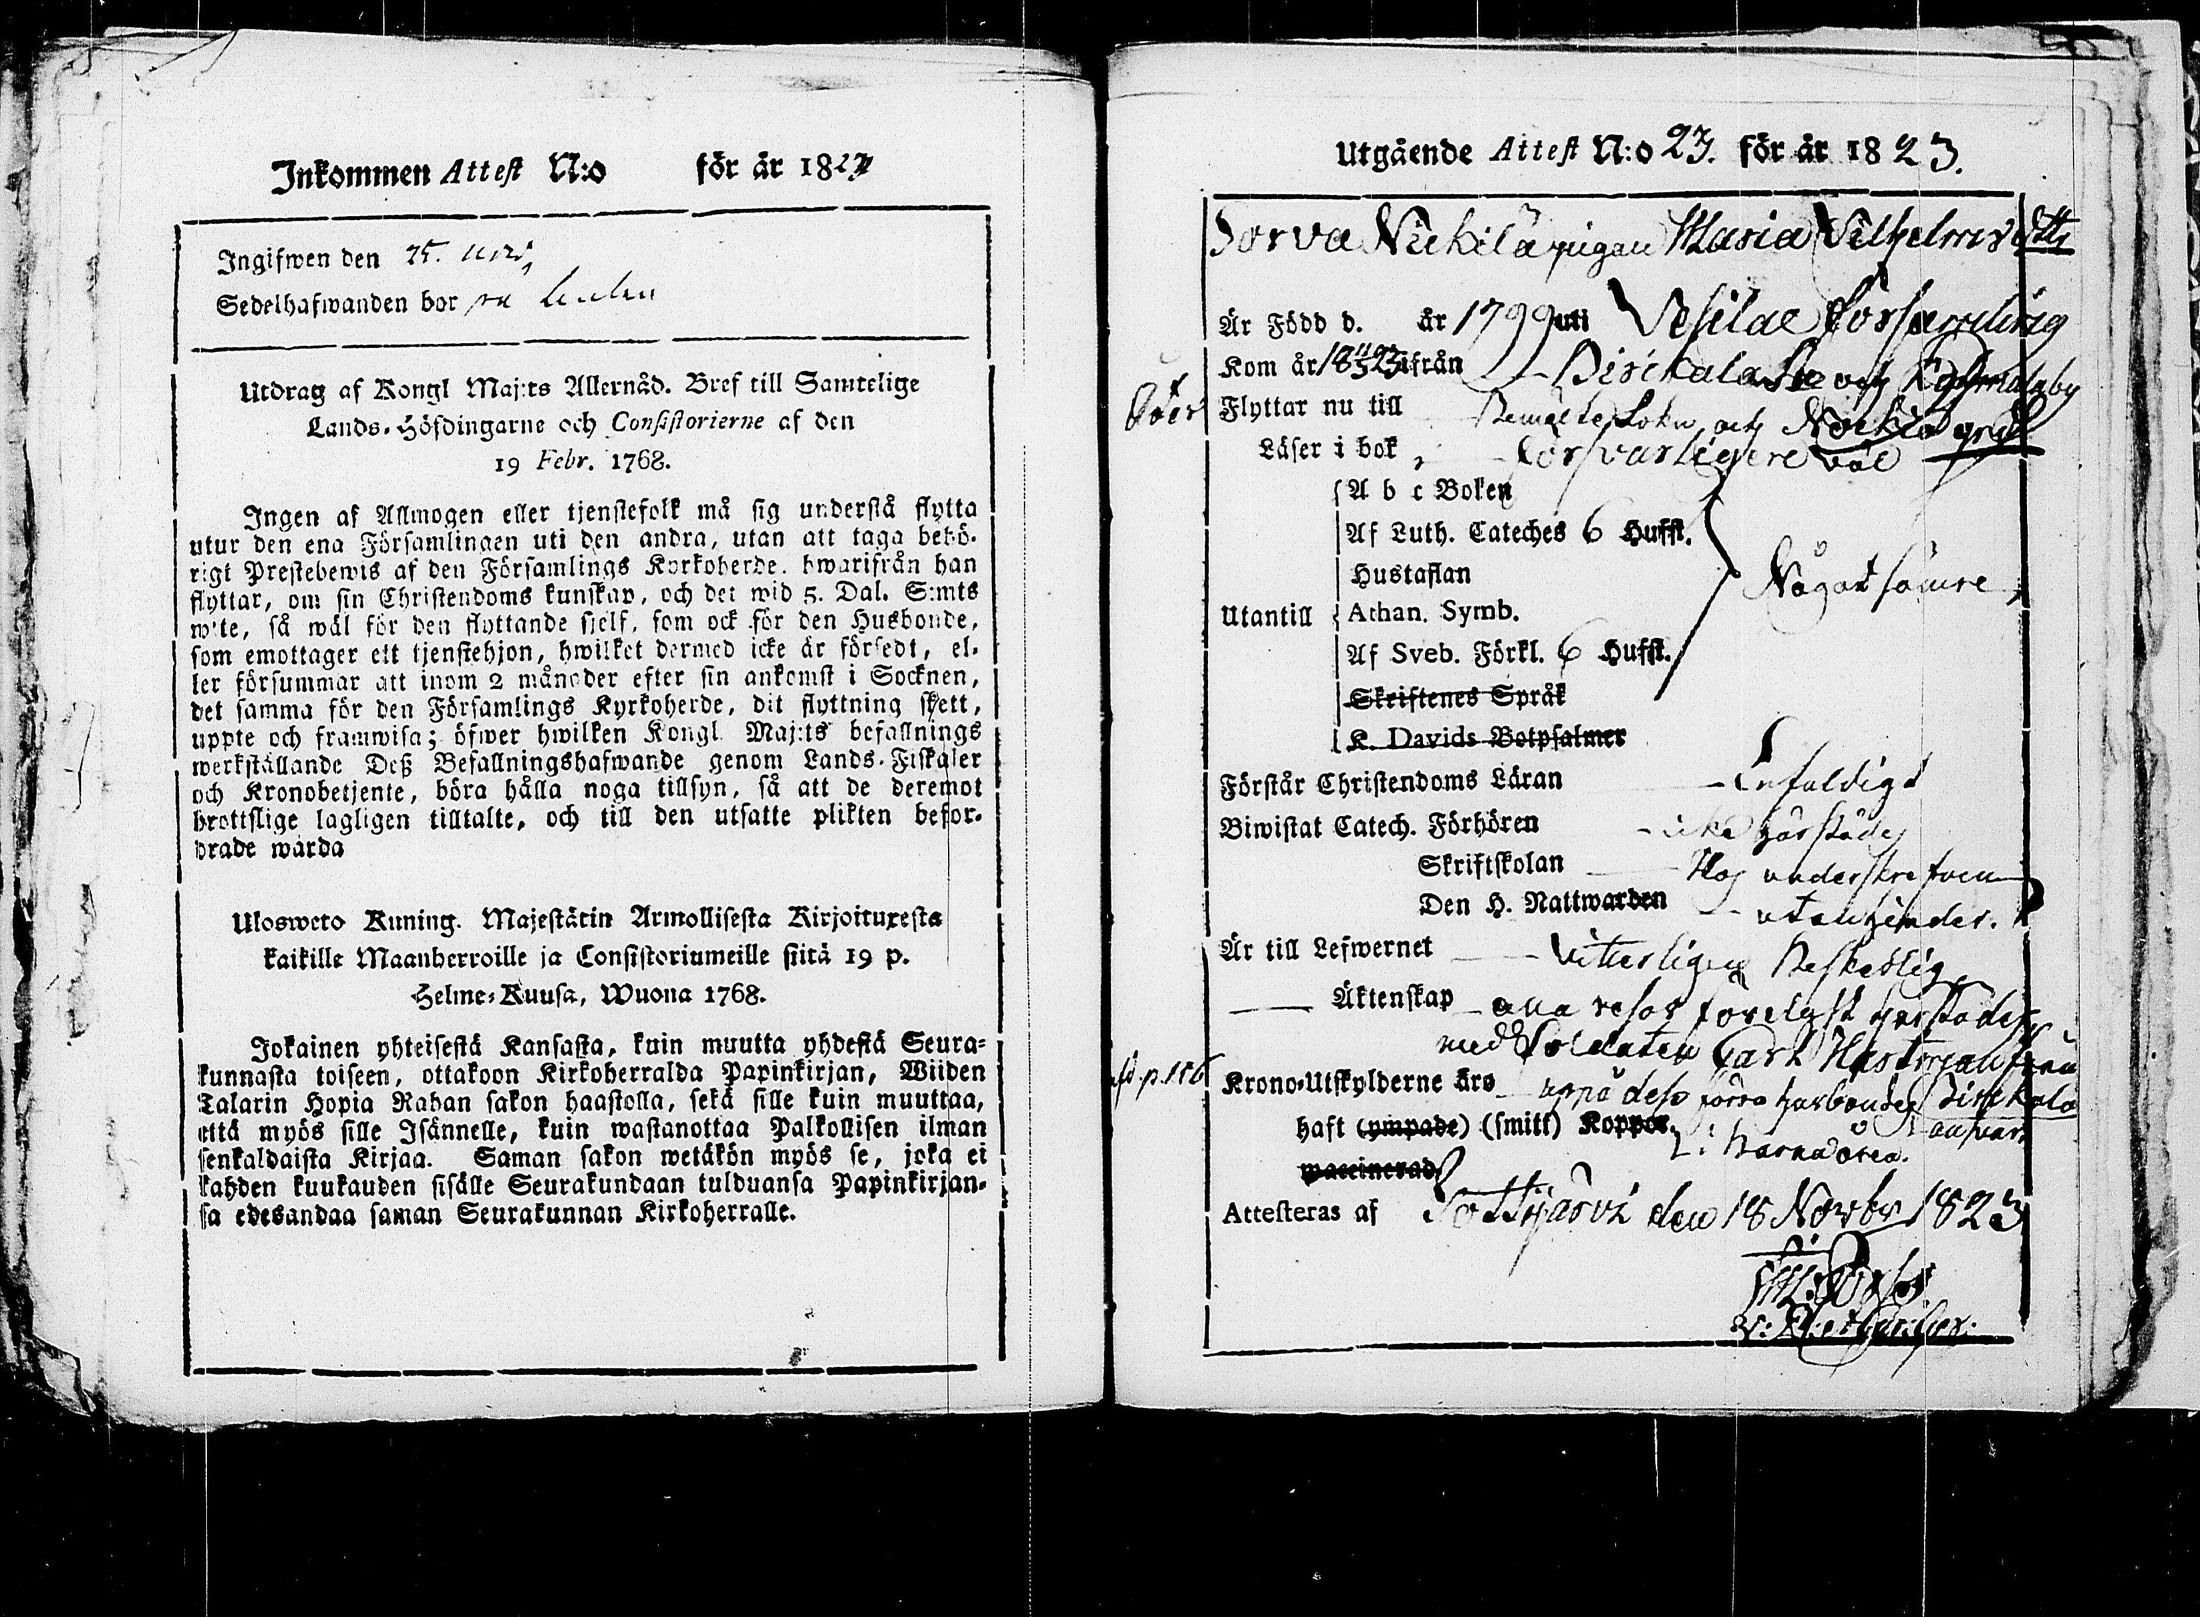 Inkommen Attest N:o för år 1823
Ingifwen den 25.
Sedelhafwanden bor
Utdrag af Kongl Maj:ts Allernåd. Bref till Samtelige
Lands-Höfdingarne och Consistorierne af den
19 Febr. 1768.
Ingen af Allmogen eller tjenstefolk må sig understå flytta
utur den ena Församlingen uti den andra, utan att taga behö-
rigt Prestebewis af den Församlings Kyrkoherde. hwarifrån han
flyttar, om sin Christendoms kunskap, och det wid 5. Dal. S:mts
wite, så wäl för den flyttande sjelf, som ock för den Husbonde,
som emottager ett tjenstehjon, hwilket dermed icke är försedt, el-
ler försummar att inom 2 månader efter sin ankomst i Socknen,
det samma för den Församlings Kyrkoherde, dit flyttning skett,
uppte och framwisa; öfwer hwilken Kongl. Maj:ts befallnings
werkställande Deß Befallningshafwande genom Lands-Fiskaler
och Kronobetjente, böra hålla noga tillsyn, så att de deremot
brottslige lagligen tilltalte, och till den utsatte plikten befor-
drade warda
Uloswето Kuning. Majestätin Armollisesta Kirjoituxesta
kaikille Maanherroille ja Consistoriumeille siitä 19 p.
Helme-Kuusa, Wuona 1768.
Jokainen yhteisestä Kansasta, kuin muutta yhdestä Seura-
kunnasta toiseen, ottakoon Kirkoherralda Papinkirjan, Wiiden
Talarin Hopia Rahan sakon haastolla, sekä sille kuin muuttaa,
että myös sille Isännelle, kuin wastanottaa Palkollisen ilman
senkaldaista Kirjaa. Saman sakon wetäkön myös se, joka ei
kahden kuukauden sisälle Seurakundaan tulduansa Papinkirjan-
sa edesandaa saman Seurakunnan Kirkoherralle.
Utgående Attest N:o 23. för år 1823.
Sorva Nickilä pigan Maria Vilhelms dtt
Är Född d. år 1799 uti Vesilae församling
Kom år 1823 ifrån Birckala
Flyttar nu till Bemälte Sokn och
Läser i bok försvarligere väl
A b c Boken
Af Luth. Cateches 6 Hufst.
Hustaflan
Något sämre
Utantill Athan. Symb.
Af Sveb. Förkl. 6 Hufst.
Skriftenes Språk
K. Davids Botpsalmer
Förstår Christendoms Läran Enfaldigt
Biwistat Catech. Förhören icke härstädes
Skriftskolan Hos underskrefven
Den H. Nattwarden utan hinder.
Är till Lefwernet Vitterligen Beskedlig
Äktenskap
med Soldaten Carl Hastman från
Krono-Utskylderne äro uppå dess förra husbondes Birckala
ansvar
haft (ympade) (smitt) Koppor.
waccinerad
Attesteras af Tottijärvi den 18 Novbr 1823